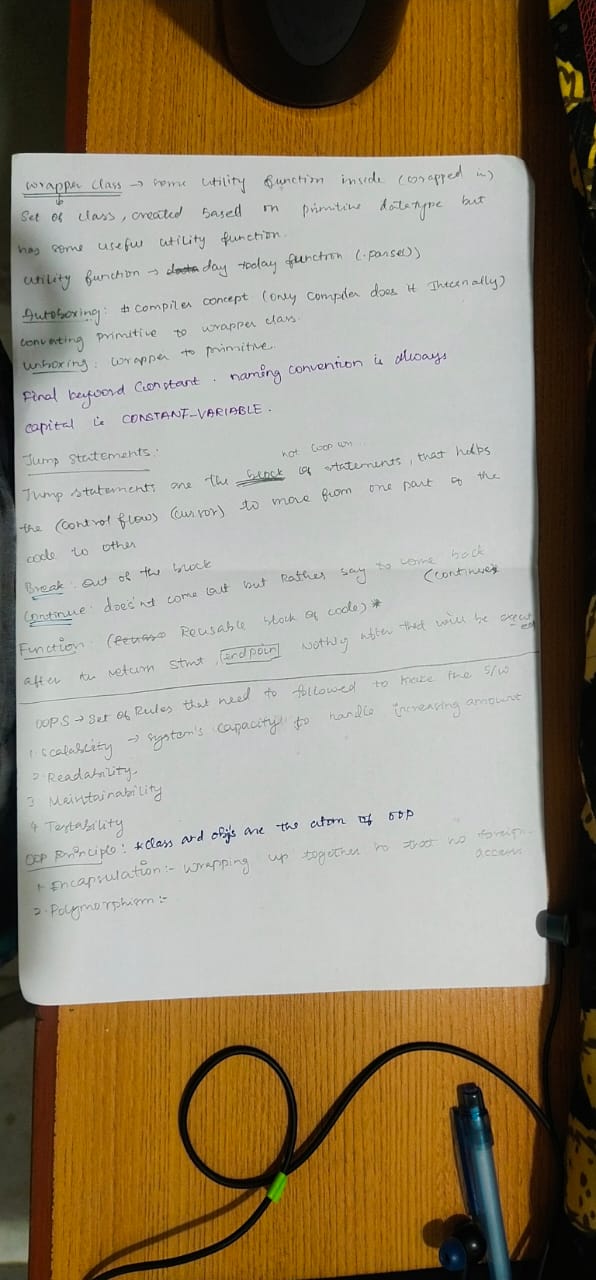 Wrapper class → some utility function inside (wrapped in)
Set of class, created based on primitive datatype but
has some useful utility function.
utility function → day today function (.parse())
Autoboxing: compiler concept (only compiler does it Internally)
converting primitive to wrapper class.
Unboxing: wrapper to primitive.
Final keyword Constant. naming convention is always
capital ie CONSTANT_VARIABLE.
Jump Statements:
not loop
Jump statements are the block of statements, that helps
the (control flow) (cursor) to move from one part of the
code to other
Break: out of the block
Continue: does'nt come out but Rather say to come back
(continue)
Function: Reusable block of code)*
after the return stmt, endpoint Nothing after that will be executed
OOPS → Set of Rules that need to followed to make the S/W
1. Scalability → system's capacity to handle increasing amount
2. Readability.
3 Maintainability
4 Testability
OOP Principle: *class and objs are the atom of OOP
1. Encapsulation:- wrapping up together so that no foreign
access
2. Polymorphism:-